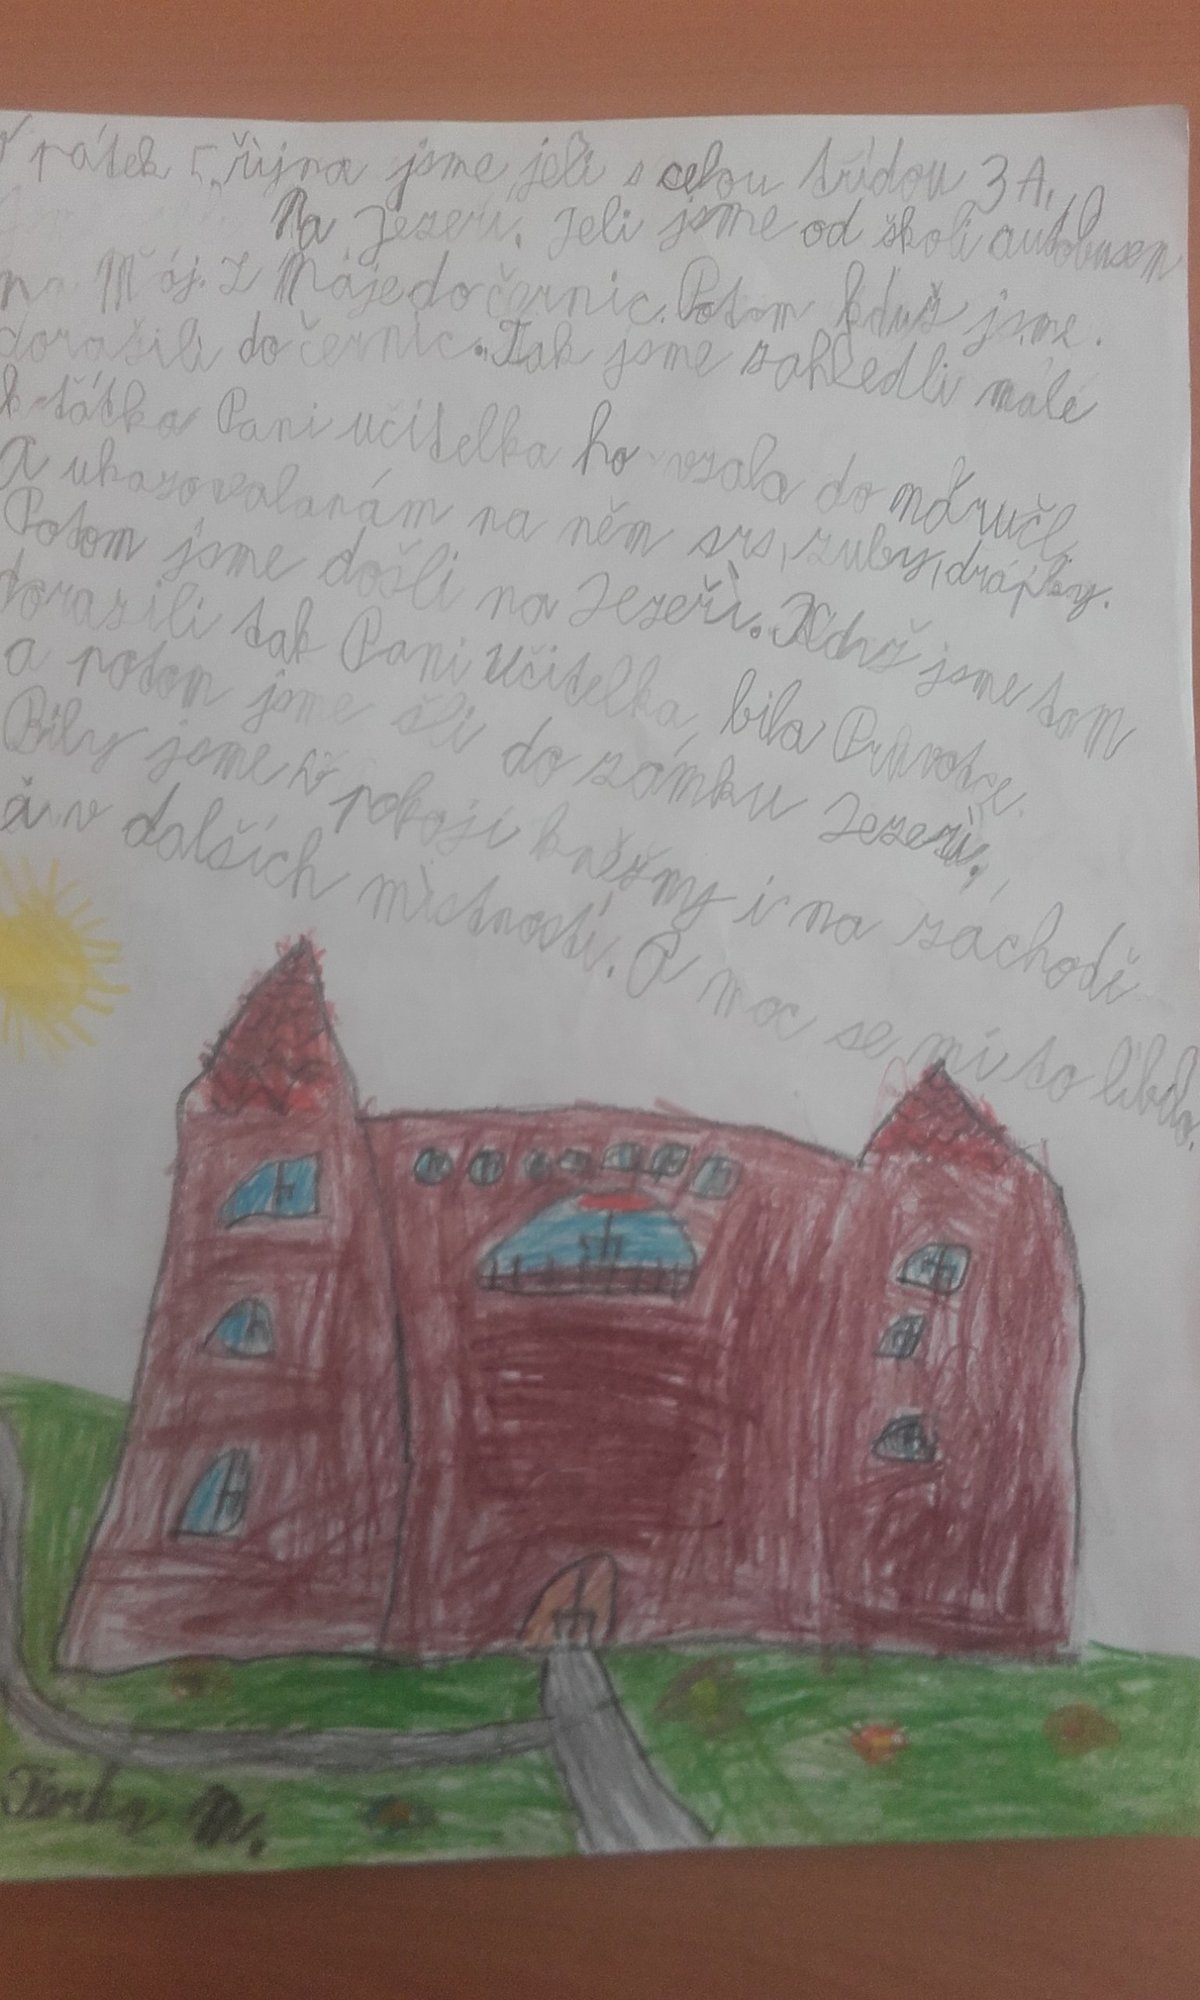 V pátek 5. října jsme jeli s celou třídou 3 A,
Na Jezeří. Jeli jsme od školi autobusem
na Máj. Z Máje do černic. Potom kduž jsme.
dorazili do černic. Tak jsme zahledli malé
k táťka Pani učitelka ho vzala do náruči,
A ukazovala nám na něm srs, zuby, drápky.
Potom jsme došli na Jezeří. Kdyš jsme tam
dorazili tak Pani Učitelka, bila
a potom jsme šli do zámku Jezeří,
Bily jsme i v pokoji kněžny i na záchodě
a v dalších místností. A moc se mi to líbilo.
Terka M.